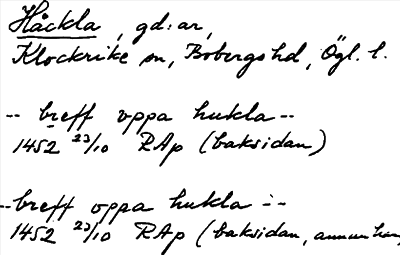 Håckla, gd:ar,
Klockrike sn, Bobergs hd, Ögl. l.
-- breff vppa hukla --
1452 23/10 RAp (baksidan)
-- breff vppa hukla --
1452 23/10 RAp (baksidan, annan han